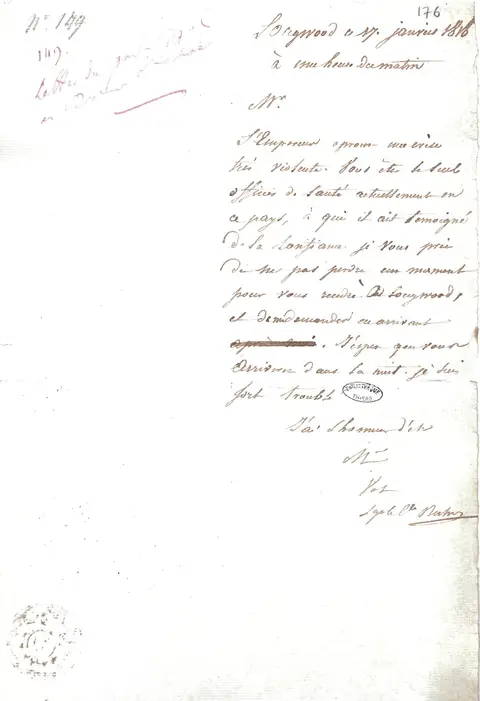 176
N° 149
149.
Lettre du
Longwood ce 17. janvier 1818
à une heure du matin
Mr.
L'Empereur eprouve une crise
très violente. Vous êtes le seul
officier de santé actuellement en
ce pays, à qui il ait temoigné
de la confiance je vous prie
de ne pas perdre un moment
pour vous rendre à Longwood,
et demander en arrivant
. J'espere que vous
arriverez dans la nuit. je suis
fort troublé
J'ai l'honneur d'etre
Mr
Vot
BIBLIOTHEQUE
THIERS